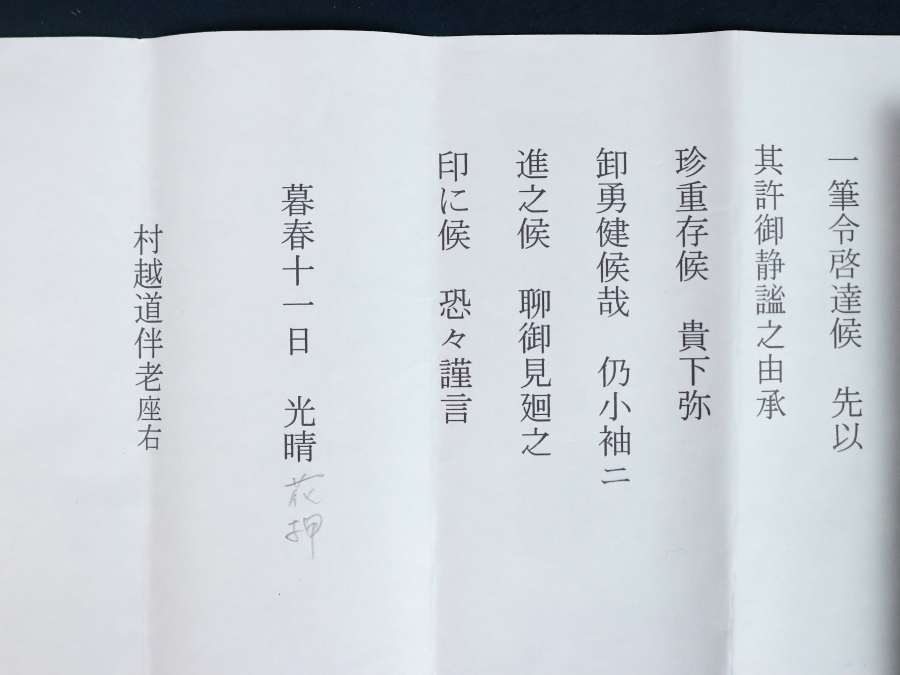 一筆令啓達候　先以
其許御静謐之由承
珍重存候　貴下弥
卸勇健候哉　仍小袖ニ
進之候　聊御見廻之
印に候　恐々謹言
暮春十一日　光晴 花押
村越道伴老座右